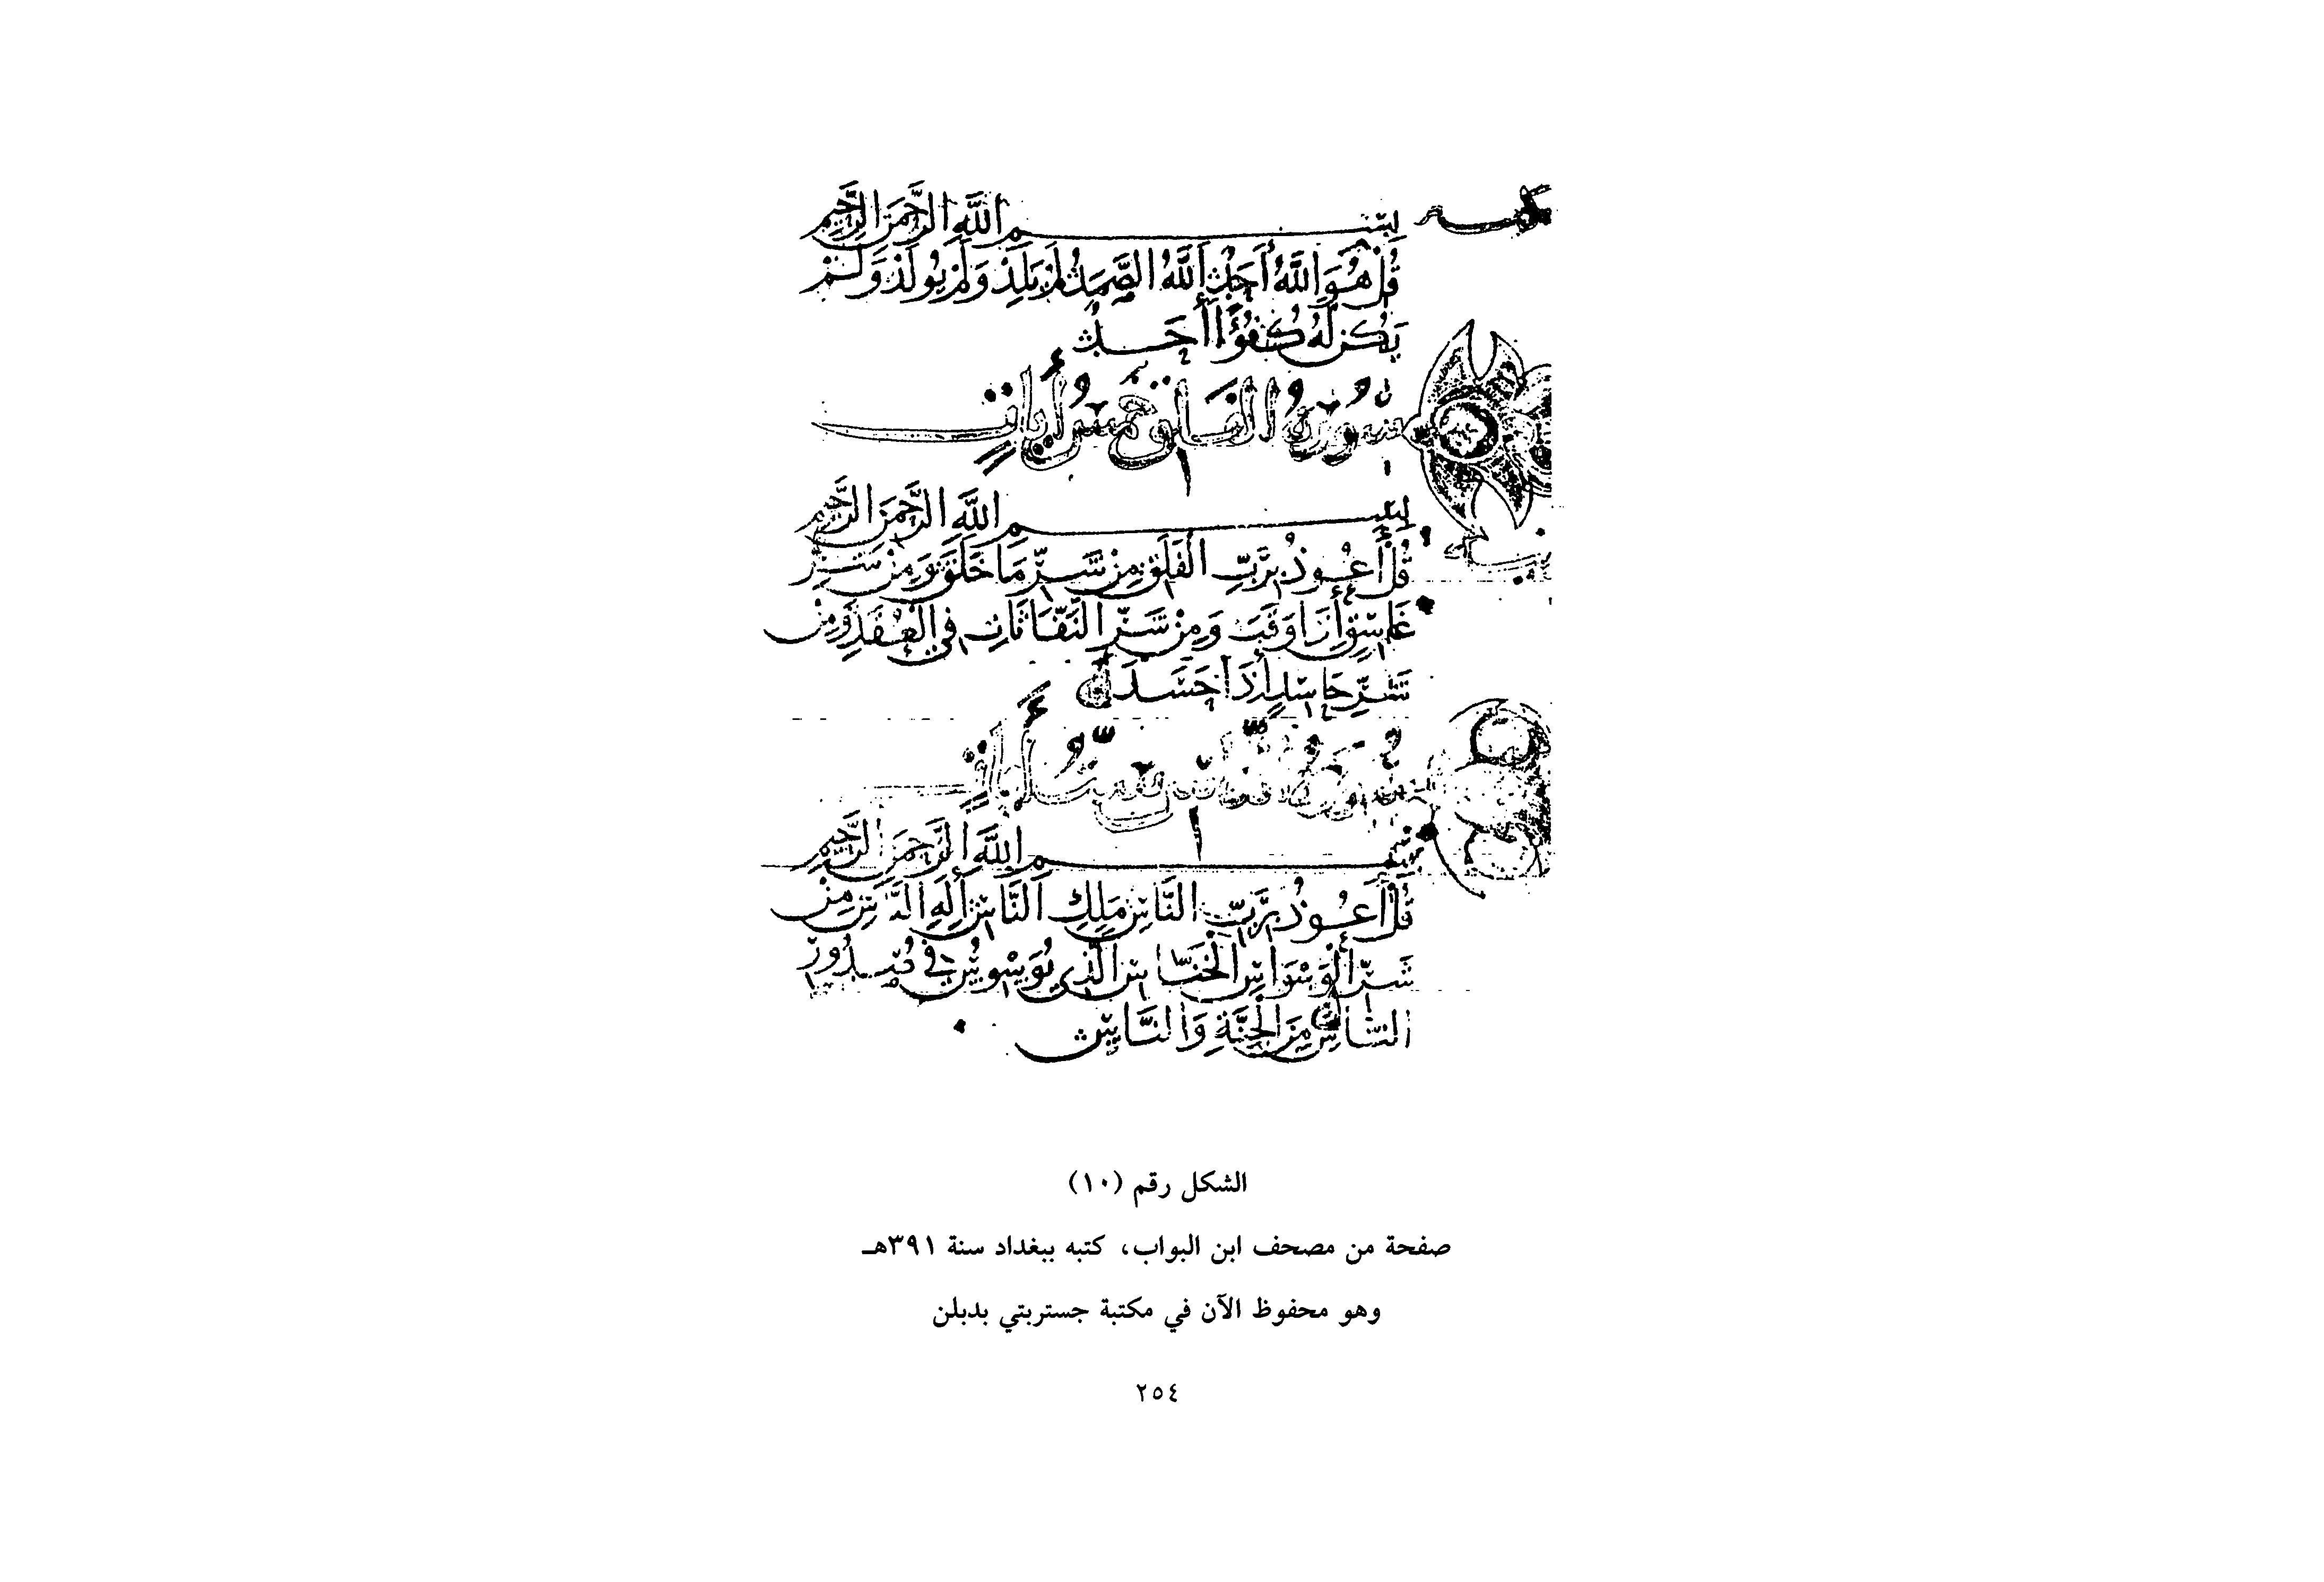 بِسْمِ اللَّهِ الرَّحْمَنِ الرَّحِيمِ
قُلْ هُوَ اللَّهُ أَحَدٌ اللَّهُ الصَّمَدُ لَمْ يَلِدْ وَلَمْ يُولَدْ وَلَمْ
يَكُنْ لَهُ كُفُؤًا أَحَدٌ
سُورَةُ الفلق خمسُ أيات
بِسْمِ اللَّهِ الرَّحْمَنِ الرَّحِيمِ
قُلْ أَعُوذُ بِرَبِّ الْفَلَقِ مِنْ شَرِّ مَا خَلَقَ وَمِنْ شَرِّ
غَاسِقٍ إِذَا وَقَبَ وَمِنْ شَرِّ النَّفَّاثَاتِ فِي الْعُقَدِ وَمِنْ
شَرِّ حَاسِدٍ إِذَا حَسَدَ
سُورَةُ النَّاسِ ستُّ أيات
بِسْمِ اللَّهِ الرَّحْمَنِ الرَّحِيمِ
قُلْ أَعُوذُ بِرَبِّ النَّاسِ مَلِكِ النَّاسِ إِلَهِ النَّاسِ مِنْ
شَرِّ الْوَسْوَاسِ الْخَنَّاسِ الَّذِي يُوَسْوِسُ فِي صُدُورِ
النَّاسِ مِنَ الْجِنَّةِ وَالنَّاسِ
الشكل رقم (١٠)
صفحة من مصحف ابن البواب، كتبه ببغداد سنة ٣٩١هـ
وهو محفوظ الآن في مكتبة جستربتي بدبلن
٢٥٤